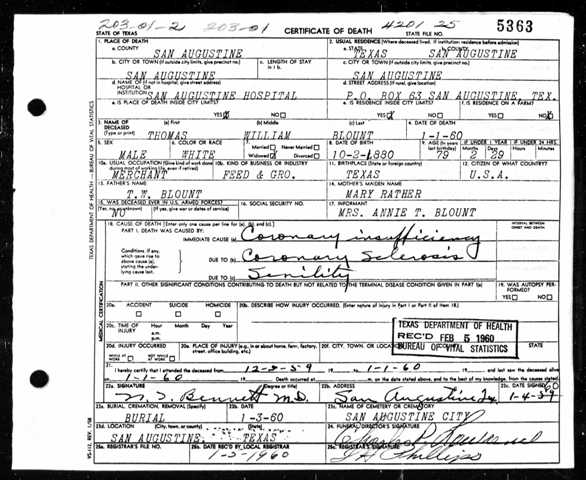 203-01-2 203-01 4201 25 5363
STATE OF TEXAS CERTIFICATE OF DEATH
1. PLACE OF DEATH 2. USUAL RESIDENCE (Where deceased lived. If institution: residence before admission)
a. COUNTY SAN AUGUSTINE a. STATE TEXAS b. COUNTY SAN AUGUSTINE
b. CITY OR TOWN (If outside city limits, give precinct no.) c. LENGTH OF STAY in 1 b. c. CITY OR TOWN (If outside city limits, give precinct no.)
SAN AUGUSTINE SAN AUGUSTINE
d. NAME OF (If not in hospital, give street address) HOSPITAL OR INSTITUTION SAN AUGUSTINE HOSPITAL d. STREET ADDRESS (If rural, give location) P.O. BOX 63 SAN AUGUSTINE, TEX.
e. IS PLACE OF DEATH INSIDE CITY LIMITS? e. IS RESIDENCE INSIDE CITY LIMITS? f. IS RESIDENCE ON A FARM?
YES NO YES NO YES NO
3. NAME OF DECEASED (Type or print) (a) First (b) Middle (c) Last 4. DATE OF DEATH
THOMAS WILLIAM BLOUNT 1-1-60
5. SEX 6. COLOR OR RACE 7. Married Never Married Widowed Divorced 8. DATE OF BIRTH 9. AGE (In years last birthday) IF UNDER 1 YEAR IF UNDER 24 HRS.
MALE WHITE 10-2-1880 79 2 29
10a. USUAL OCCUPATION (Give kind of work done during most of working life, even if retired) 10b. KIND OF BUSINESS OR INDUSTRY 11. BIRTHPLACE (State or foreign country) 12. CITIZEN OF WHAT COUNTRY?
MERCHANT FEED & GRO. TEXAS U.S.A.
13. FATHER'S NAME 14. MOTHER'S MAIDEN NAME
T.W. BLOUNT MARY RATHER
15. WAS DECEASED EVER IN U.S. ARMED FORCES? 16. SOCIAL SECURITY NO. 17. INFORMANT
(Yes, no, or unknown) (If yes, give war or dates of service)
NO MRS. ANNIE T. BLOUNT
18. CAUSE OF DEATH [Enter only one cause per line for (a), (b), and (c).] INTERVAL BETWEEN ONSET AND DEATH
PART I. DEATH WAS CAUSED BY:
IMMEDIATE CAUSE (a) Coronary insufficiency
Conditions, if any, which gave rise to above cause (a), stating the underlying cause last.
DUE TO (b) Coronary Sclerosis
DUE TO (c) Senility
PART II. OTHER SIGNIFICANT CONDITIONS CONTRIBUTING TO DEATH BUT NOT RELATED TO THE TERMINAL DISEASE CONDITION GIVEN IN PART I (a) 19. WAS AUTOPSY PERFORMED?
YES NO
20a. ACCIDENT SUICIDE HOMICIDE 20b. DESCRIBE HOW INJURY OCCURRED. (Enter nature of injury in Part I or Part II of item 18.)
20c. TIME OF INJURY Hour Month Day Year
20d. INJURY OCCURRED WHILE AT WORK NOT WHILE AT WORK 20e. PLACE OF INJURY (e.g., in or about home, farm, factory, street, office building, etc.) 20f. CITY, TOWN, OR LOCATION COUNTY STATE
TEXAS DEPARTMENT OF HEALTH
REC'D FEB 5 1960
BUREAU OF VITAL STATISTICS
21. I hereby certify that I attended the deceased from 12-3-59 1-1-60 and last saw the deceased alive
1-1-60 Death occurred at m. on the date stated above, and to the best of my knowledge, from the causes stated.
22a. SIGNATURE (Degree or title) 22b. ADDRESS 22c. DATE SIGNED
Bennett M.D. San Augustine Tx
23a. BURIAL, CREMATION, REMOVAL (Specify) 23b. DATE 23c. NAME OF CEMETERY OR CREMATORY
BURIAL 1-3-60 SAN AUGUSTINE CITY
23d. LOCATION (City, town, or county) (State) 24. FUNERAL DIRECTOR'S SIGNATURE
SAN AUGUSTINE, TEXAS
25a. REGISTRAR'S FILE NO. 25b. DATE REC'D BY LOCAL REGISTRAR 25c. REGISTRAR'S SIGNATURE
Phillips
TEXAS DEPARTMENT OF HEALTH - BUREAU OF VITAL STATISTICS
MEDICAL CERTIFICATION